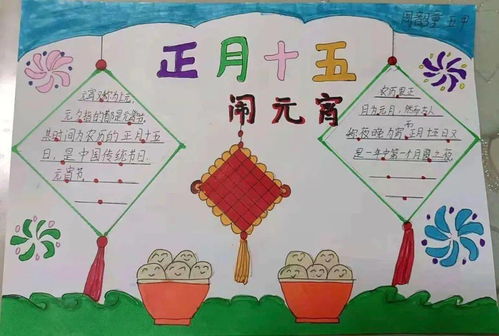 正月十五
闹元宵
元宵又称为上元,
元夕指的都是元宵节,
其时间为农历的正月十五
日，是中国传统节日.
元宵节.
农历里正
月为元月，然而古人
称夜晚为宵,正月十五日又
是一年中第一个月圆之夜.
五中